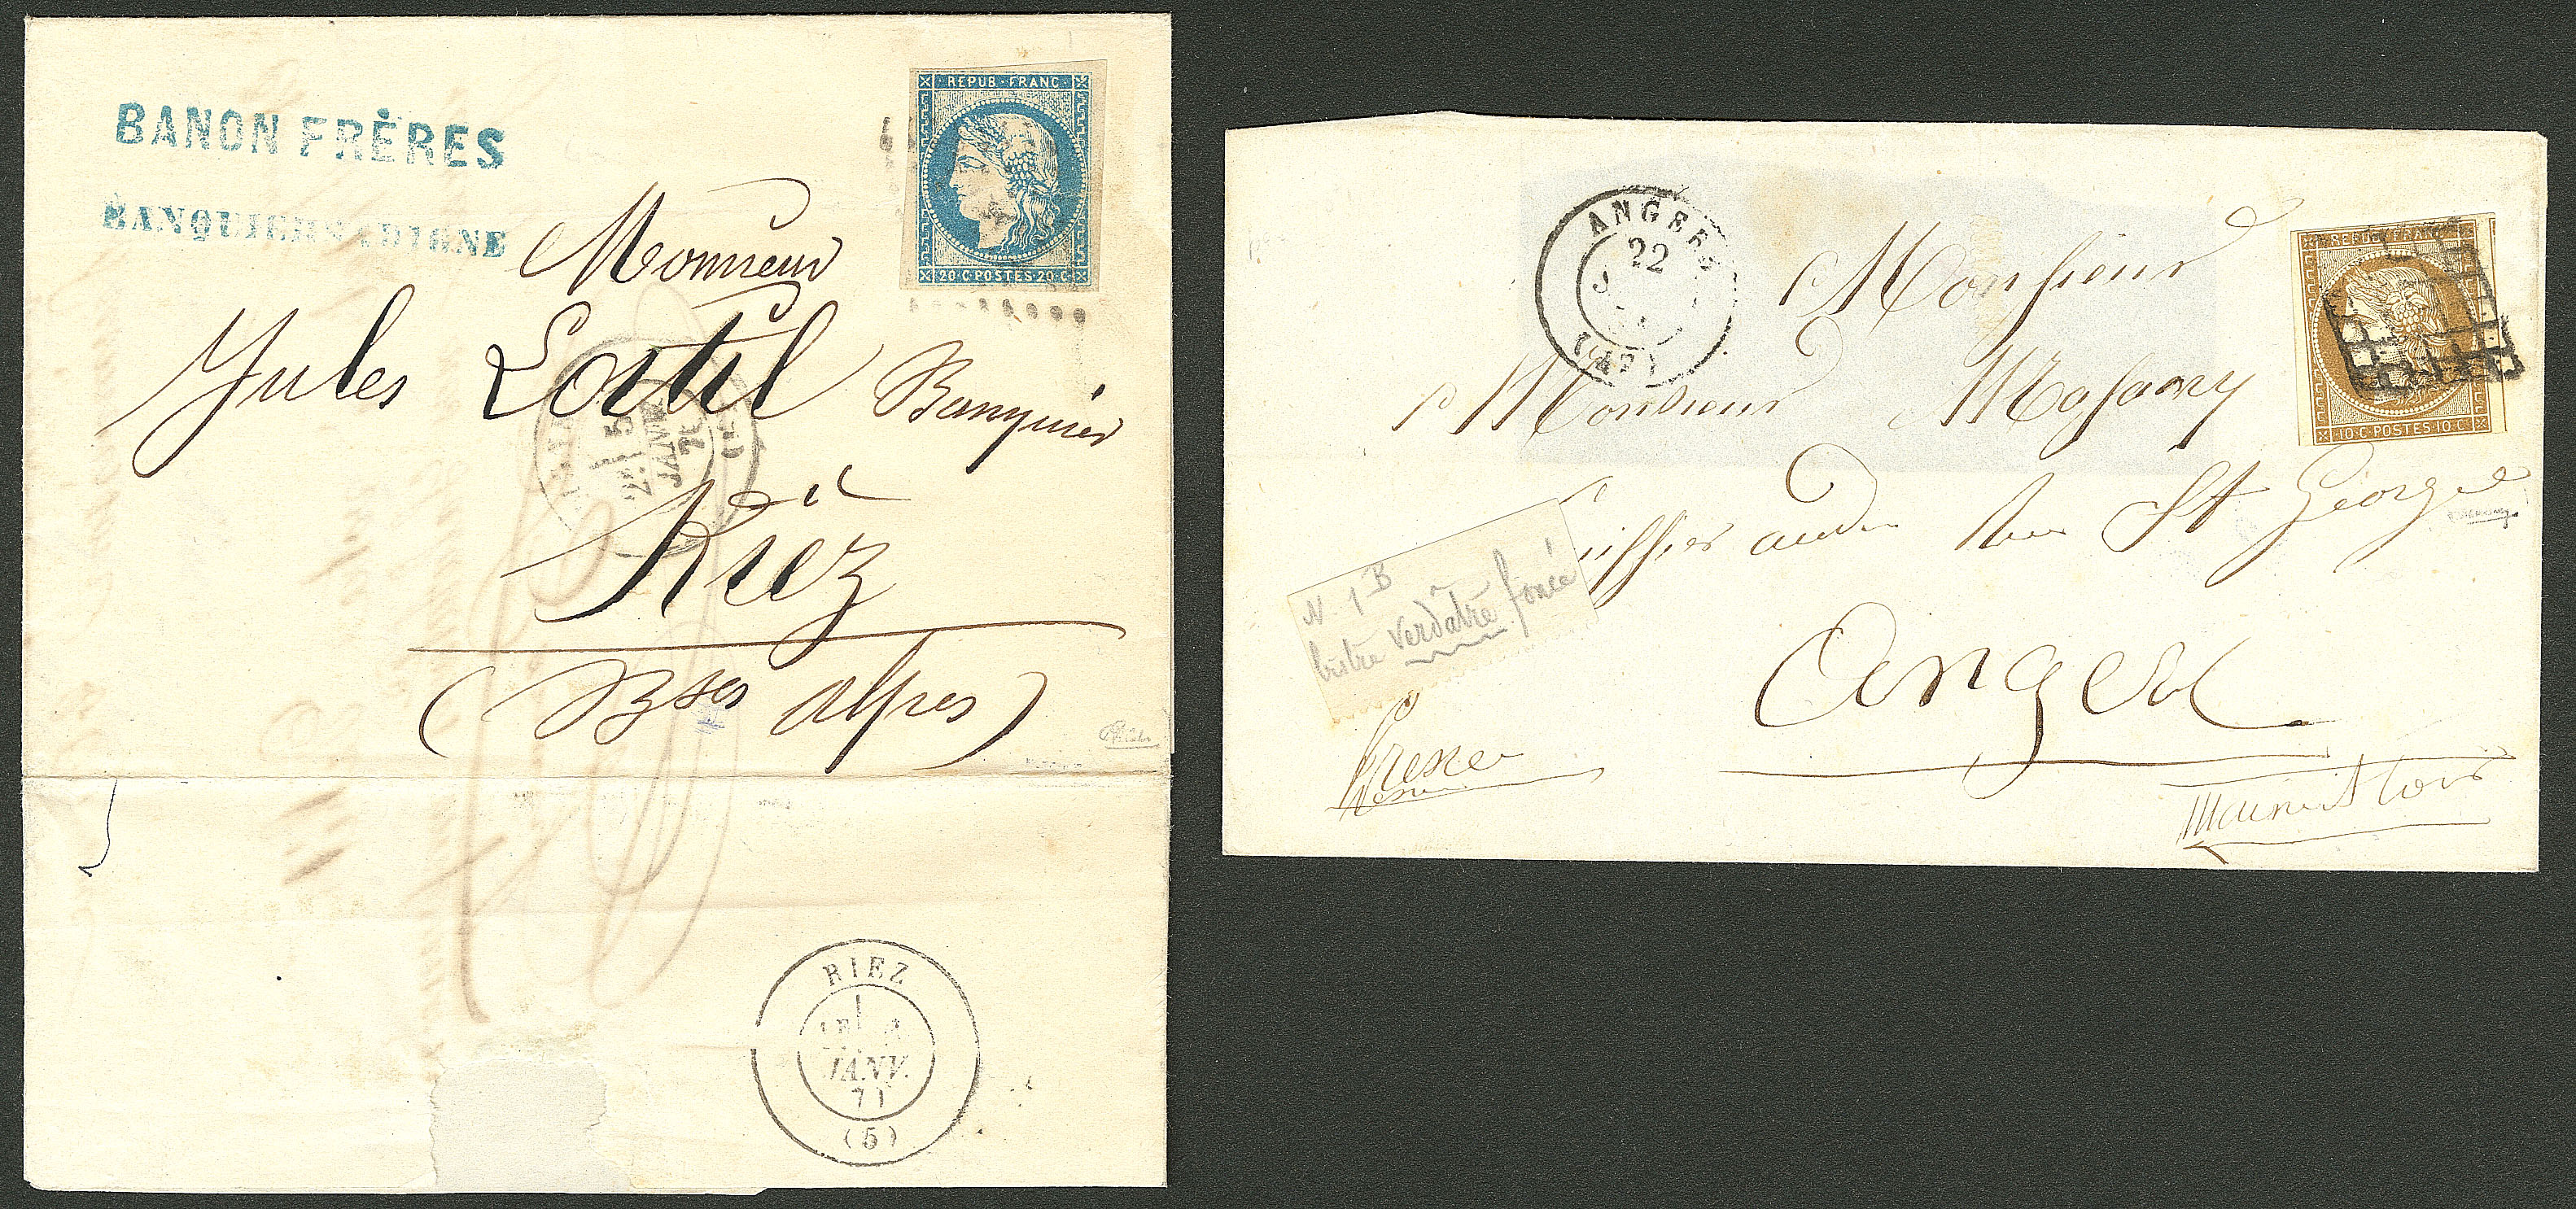 BANON FRÈRES
BANQUIERS A DIGNE
REPUB·FRANC
20·C·POSTES·20·C
Monsieur
Jules Banquier
à
Riez
(Bses Alpes)
2E
5
JANV.
(5)
RIEZ
JANV.
71
(5)
ANGERS
22
(47)
REPUB·FRANC
10·C·POSTES·10·C
Monsieur
Monsieur
rue St George
N 1 B
bistre verdâtre foncé
Angers